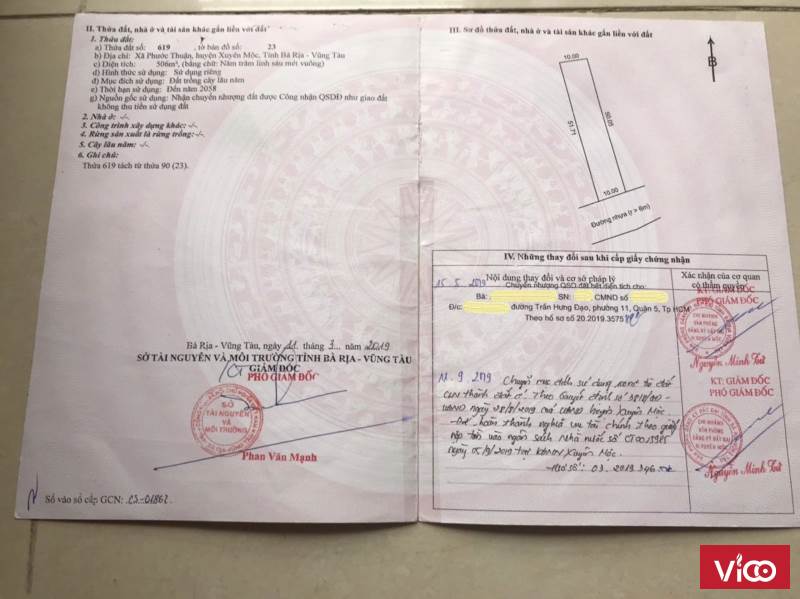 II. Thửa đất, nhà ở và tài sản khác gắn liền với đất
1. Thửa đất:
a) Thửa đất số: 619, tờ bản đồ số: 23
b) Địa chỉ: Xã Phước Thuận, huyện Xuyên Mộc, Tỉnh Bà Rịa - Vũng Tàu
c) Diện tích: 506m², (bằng chữ: Năm trăm linh sáu mét vuông)
d) Hình thức sử dụng: Sử dụng riêng
đ) Mục đích sử dụng: Đất trồng cây lâu năm
e) Thời hạn sử dụng: Đến năm 2058
g) Nguồn gốc sử dụng: Nhận chuyển nhượng đất được Công nhận QSDĐ như giao đất
không thu tiền sử dụng đất
2. Nhà ở: -/-
3. Công trình xây dựng khác: -/-
4. Rừng sản xuất là rừng trồng: -/-
5. Cây lâu năm: -/-
6. Ghi chú:
Thửa 619 tách từ thửa 90 (23).
Bà Rịa - Vũng Tàu, ngày 21 tháng 3 năm 2019
SỞ TÀI NGUYÊN VÀ MÔI TRƯỜNG TỈNH BÀ RỊA - VŨNG TÀU
KT GIÁM ĐỐC
PHÓ GIÁM ĐỐC
SỞ
TÀI NGUYÊN
VÀ
MÔI TRƯỜNG
Phan Văn Mạnh
Số vào sổ cấp GCN: CS-01862
III. Sơ đồ thửa đất, nhà ở và tài sản khác gắn liền với đất
B
10.00
51.71
50.05
10.00
Đường nhựa (r > 6m)
IV. Những thay đổi sau khi cấp giấy chứng nhận
Nội dung thay đổi và cơ sở pháp lý
Xác nhận của cơ quan
có thẩm quyền
15.5.2019 Chuyển nhượng QSD đất hết diện tích cho:
Bà: SN: CMND số
Đ/c: đường Trần Hưng Đạo, phường 11, Quận 5, Tp HCM
Theo hồ sơ số 20.2019.3575
KT. GIÁM ĐỐC
PHÓ GIÁM ĐỐC
CHI NHÁNH
VĂN PHÒNG
ĐĂNG KÝ ĐẤT ĐAI
H.XUYÊN MỘC
Nguyễn Minh Tư
Chuyển mục đích sử dụng từ đất
CLN thành đất ở. Theo Quyết định số
UBND ngày của UBND huyện Xuyên Mộc
Đã hoàn thành nghĩa vụ tài chính theo giấy
nộp tiền vào ngân sách Nhà nước số
ngày 05/9/2019 tại KBNN Xuyên Mộc.
Hồ sơ số: 03.2019.346
KT: GIÁM ĐỐC
PHÓ GIÁM ĐỐC
CHI NHÁNH
VĂN PHÒNG
ĐĂNG KÝ ĐẤT ĐAI
H.XUYÊN MỘC
Nguyễn Minh Tư
VICO